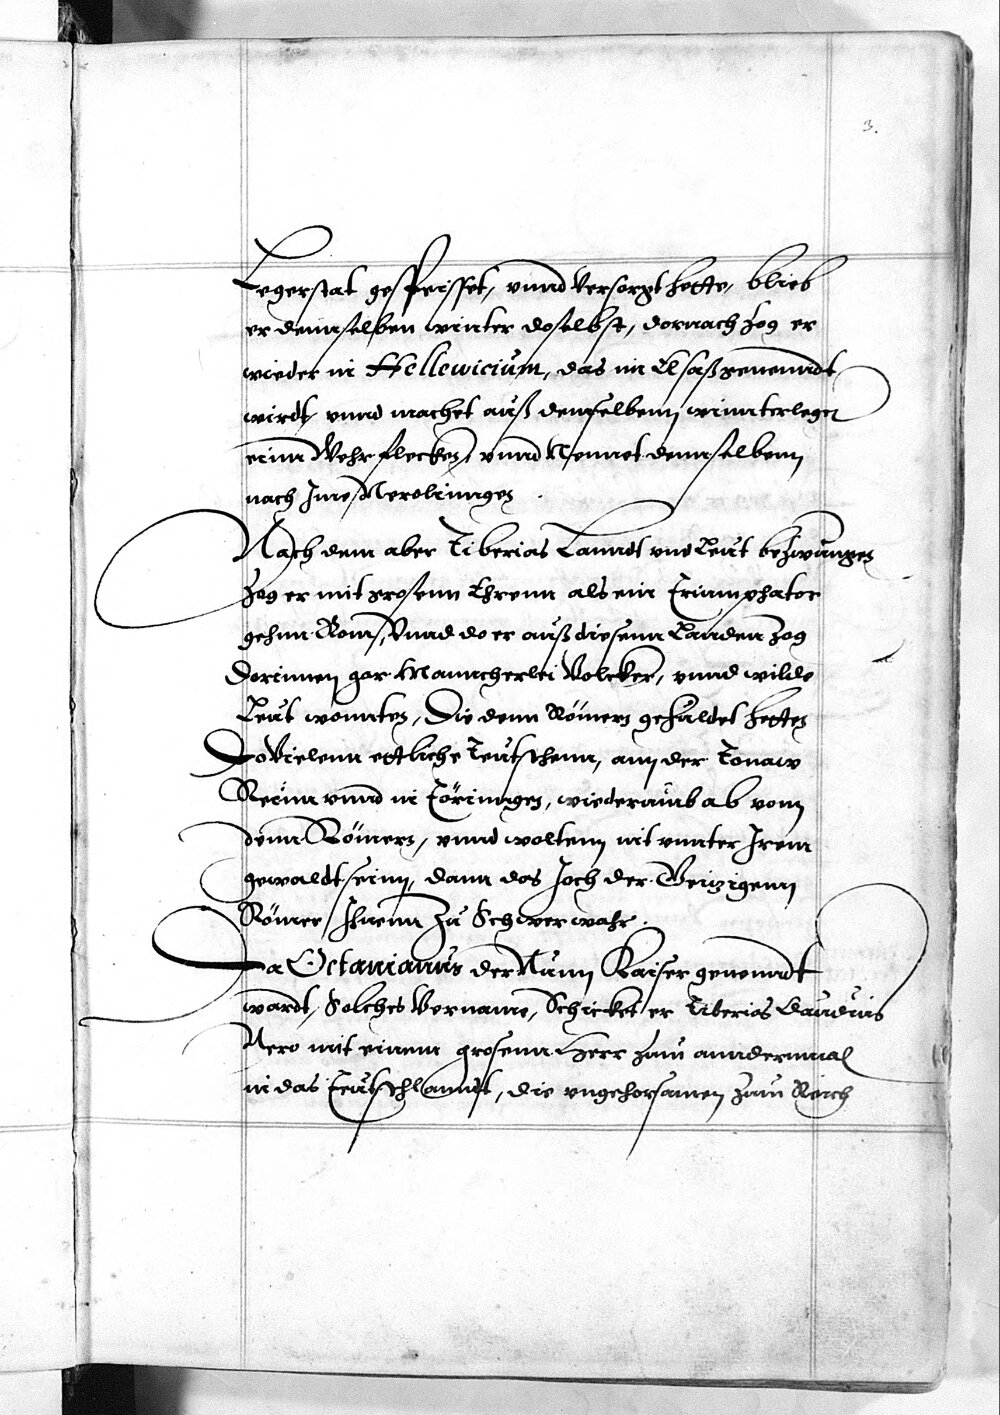 3.
Legerstat gespeisset, vnnd Versorgt hette, blieb
er dennselben winter doselbst, dornach Zog er
wieder in Hellewicium, das im Elsaß genenndt
wirdt, vnnd machet auß demselbenn winnterleger
einn Wehr flecken, vnnd Nennet dennselbenn
nach Ime Nerolinngen
Nach dem aber Tiberias Lanndt vnd Leut bezwungen
Zog er mit grosenn Ehrenn als ein Triumphator
gehnn Rom, Vnnd do er auß diesenn Landen Zog
Dorinnen gar Manncherlei Volcker, vnnd wilde
Leut wonnten, Die denn Römern gehuldet hetten
Do Vielenn ettliche Teutschenn, ann der Tonaw
Reinn vnnd in Töringen, wiederumb ab vonn
denn Römern, vnnd woltenn nit vnnter Irem
gewaldt seinn, dann das Joch der Geizigenn
Römer Ihnenn Zu Schwer wahr.
Da Octauianus der Nunn Kaiser genenndt
wardt, Solches Vername, Schicket er Tiberias Claudius
Nero mit einem grosenn Herr Zum anndernmal
in das Teutschlanndt, die vngehorsamen Zum Reich